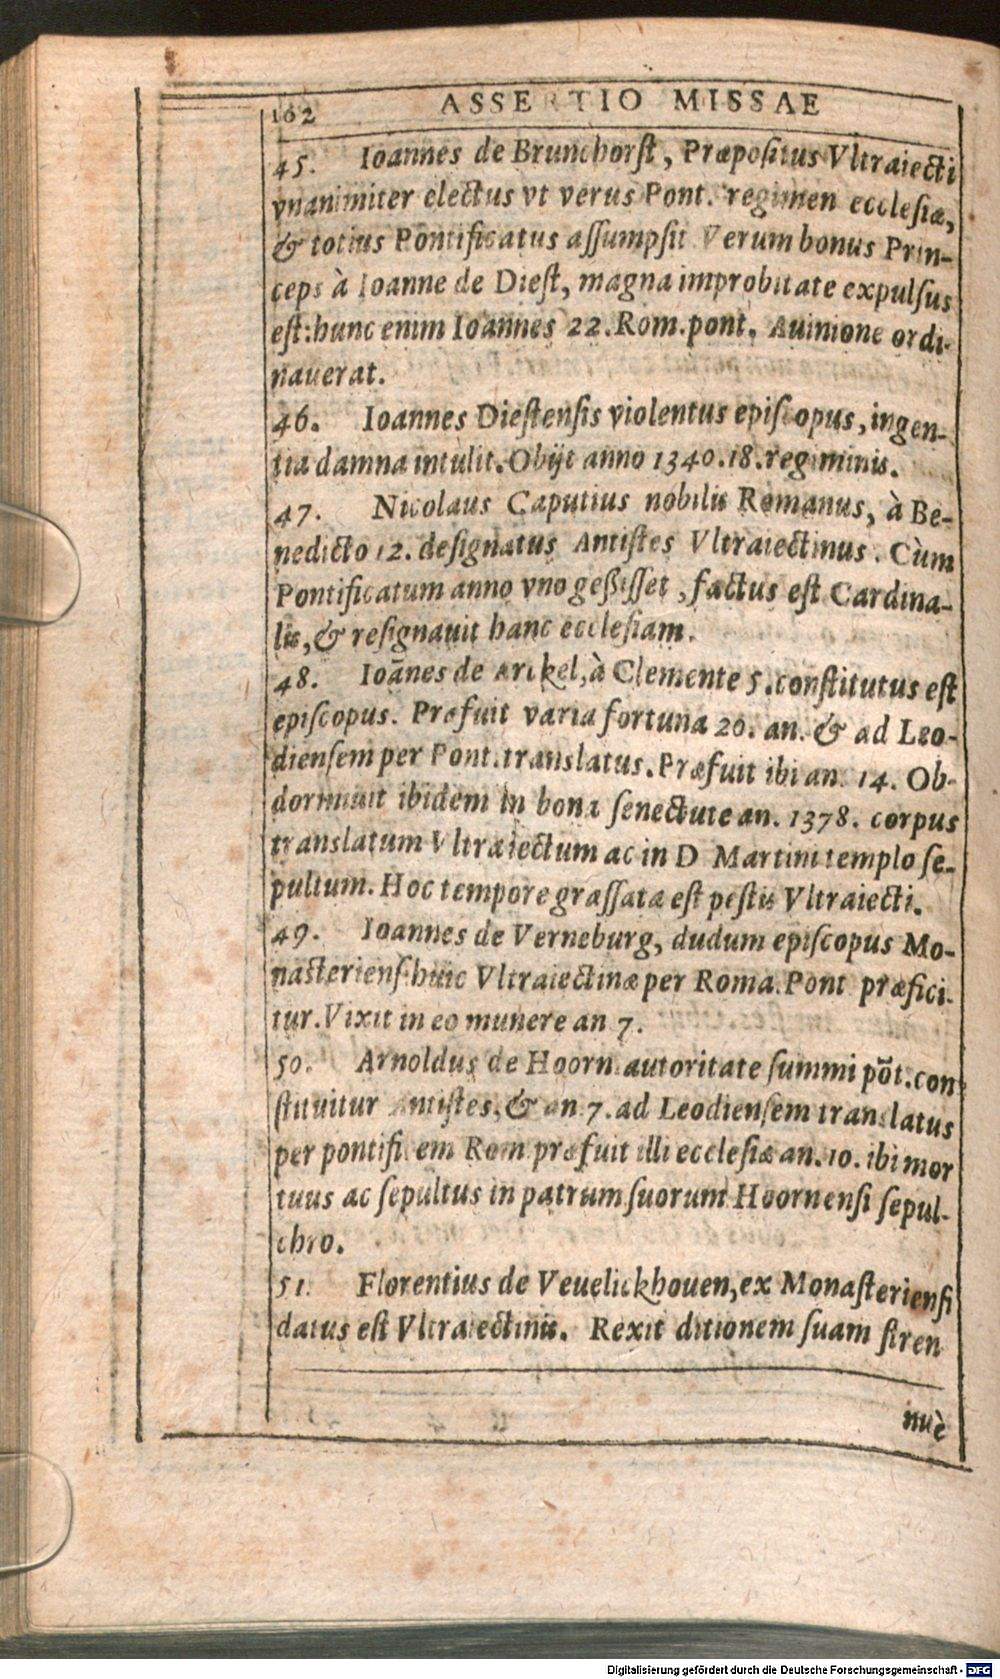 162 ASSERTIO MISSAE
45. Ioannes de Brunchorſt, Præpoſitus Vltraiecti
vnanimiter electus vt verus Pont. regimen eccleſiæ,
& totius Pontificatus aſſumpſit Verum bonus Prin-
ceps à Ioanne de Dieſt, magna improbitate expulſus
eſt: hunc enim Ioannes 22. Rom. pont. Auinione ordi-
nauerat.
46. Ioannes Dieſtenſis violentus epiſcopus, ingen-
tia damna intulit. Obijt anno 1340. 18. regiminis.
47. Nicolaus Caputius nobilis Romanus, à Be-
nedicto 12. deſignatus Antiſtes Vltraiectinus. Cùm
Pontificatum anno vno geßiſſet, factus eſt Cardina-
lis, & reſignauit hanc eccleſiam.
48. Ioãnes de Arckel, à Clemente 5. conſtitutus eſt
epiſcopus. Præfuit varia fortuna 20. an. & ad Leo-
dienſem per Pont. translatus. Præfuit ibi an. 14. Ob-
dormiuit ibidem in bona ſenectute an. 1378. corpus
translatum Vltraiectum ac in D Martini templo ſe-
pultum. Hoc tempore graſſata eſt peſtis Vltraiecti.
49. Ioannes de Verneburg, dudum epiſcopus Mo-
naſterienſ. huic Vltraiectinæ per Roma. Pont præfici-
tur. Vixit in eo munere an 7.
50. Arnoldus de Hoorn autoritate ſummi põt. con-
ſtituitur Antiſtes, & an 7. ad Leodienſem translatus
per pontificem Rom præfuit illi eccleſiæ an. 10. ibi mor
tuus ac ſepultus in patrum ſuorum Hoornenſi ſepul-
chro.
51. Florentius de Veuelickhouen, ex Monaſterienſi
datus eſt Vltraiectinis. Rexit ditionem ſuam ſtren
nuè
Digitalisierung gefördert durch die Deutsche Forschungsgemeinschaft - DFG